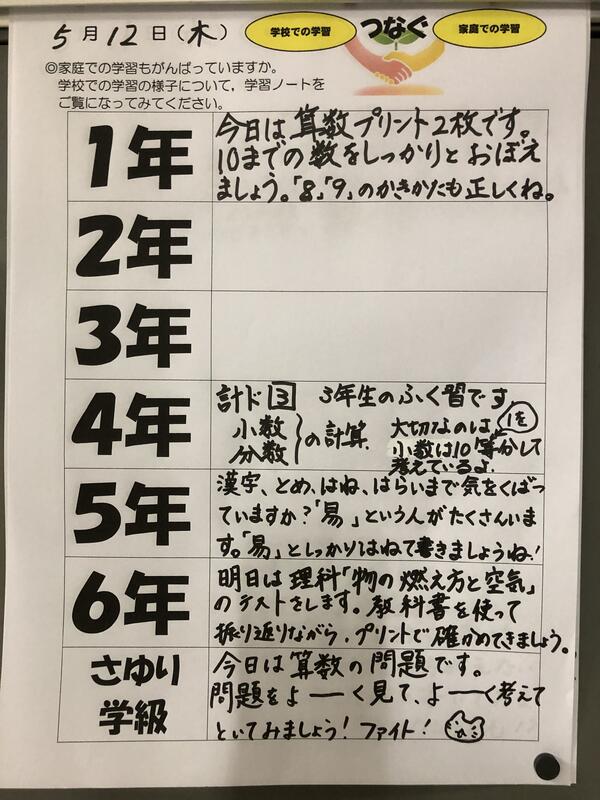 5月12日(木)
学校での学習
つなぐ
家庭での学習
◎家庭での学習もがんばっていますか。
学校での学習の様子について,学習ノートを
ご覧になってみてください。
1年
今日は算数プリント2枚です。
10までの数をしっかりとおぼえ
ましょう。「8」「9」のかきかたも正しくね。
2年
3年
4年
計ド3 3年生のふく習です
小数
分数
の計算.
大切なのは、
1を
小数は10等分して
考えているよ.
5年
漢字、とめ、はね、はらいまで気をくばっ
ていますか?「易」という人がたくさんいま
す。「易」としっかりはねて書きましょうね!
6年
明日は理科「物の燃え方と空気」
のテストをします。教科書を使って
振り返りながら、プリントで確かめてきましょう。
さゆり
学級
今日は算数の問題です。
問題をよーく見て、よーく考えて
といてみましょう!ファイト!